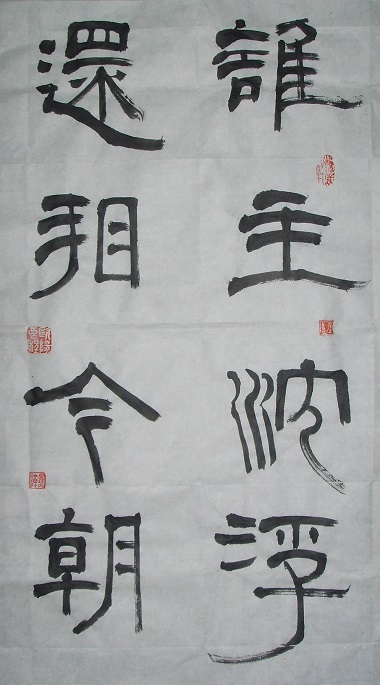 誰主沈浮
還看今朝